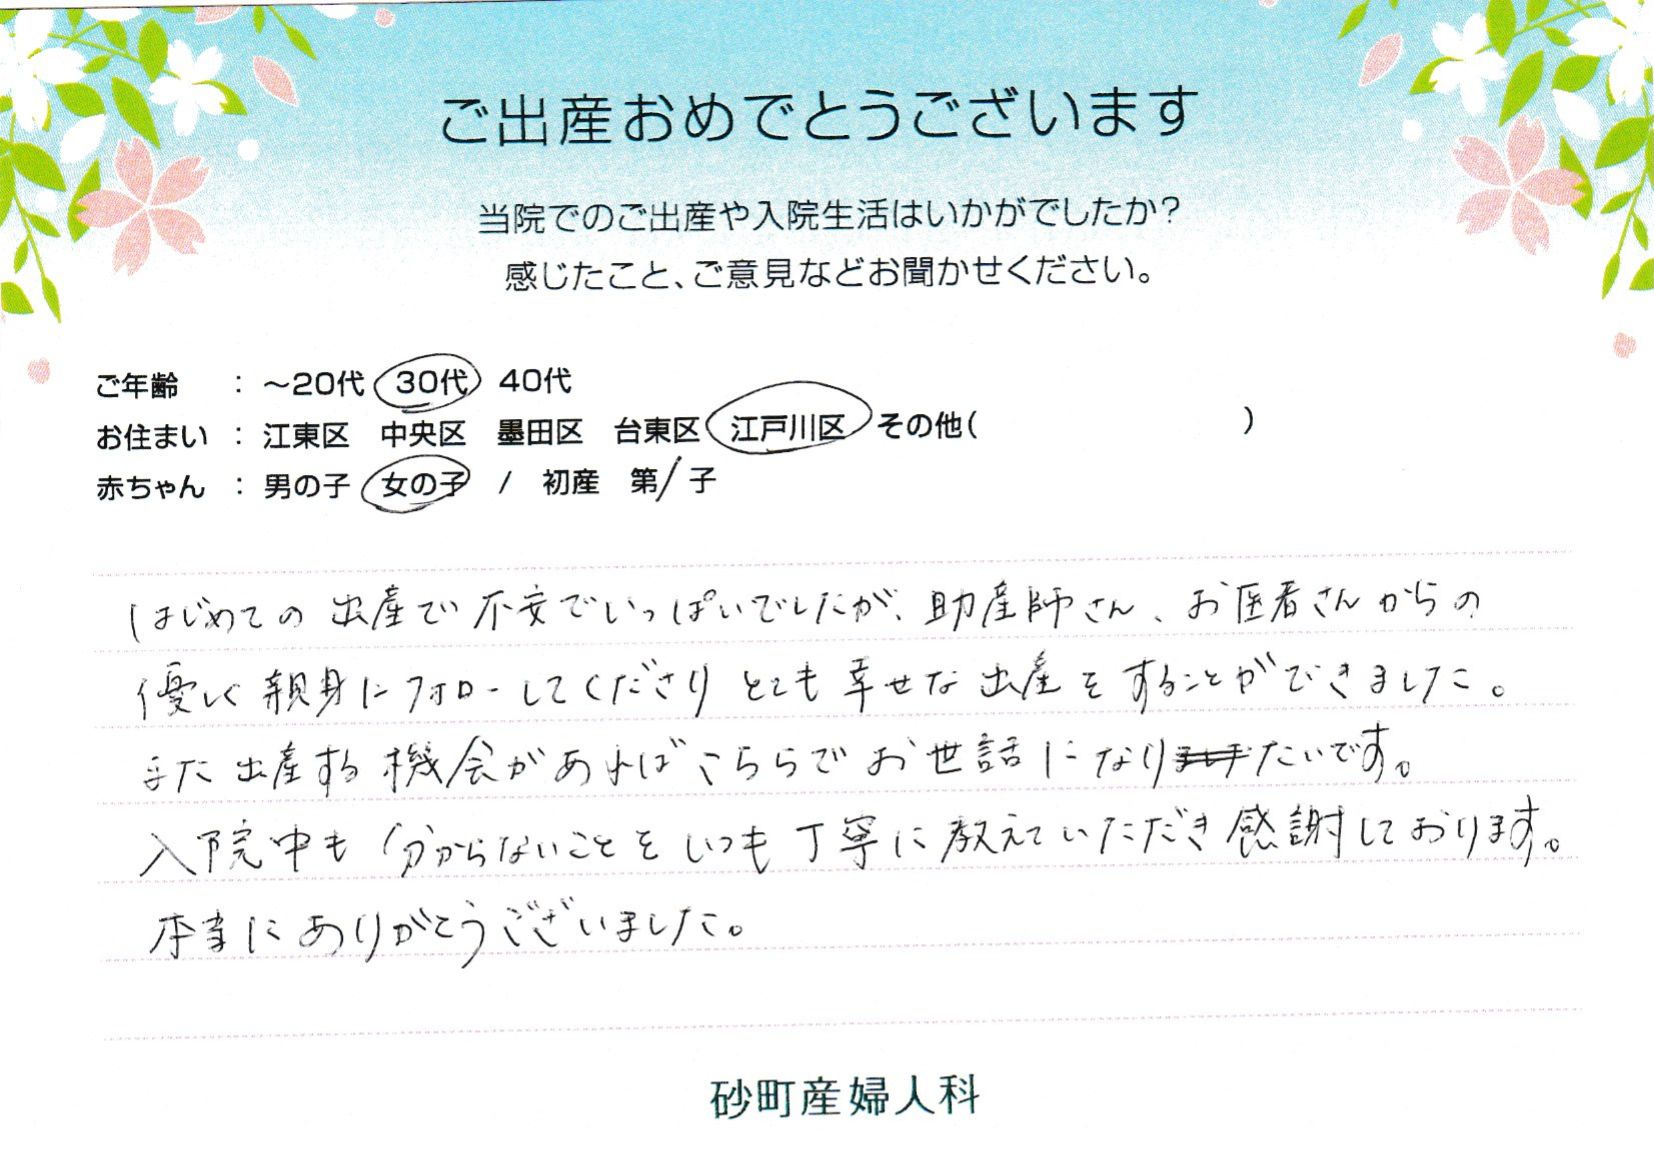 ご出産おめでとうございます
当院でのご出産や入院生活はいかがでしたか?
感じたこと、ご意見などお聞かせください。
ご年齢 : ～20代 30代 40代
お住まい : 江東区 中央区 墨田区 台東区 江戸川区 その他( )
赤ちゃん : 男の子 女の子 / 初産 第1子
はじめての出産で不安でいっぱいでしたが、助産師さん、お医者さんからの
優しく親身にフォローしてくださりとても幸せな出産をすることができました。
また出産する機会があればこちらでお世話になりたいです。
入院中も分からないことをいつも丁寧に教えていただき感謝しております。
本当にありがとうございました。
砂町産婦人科